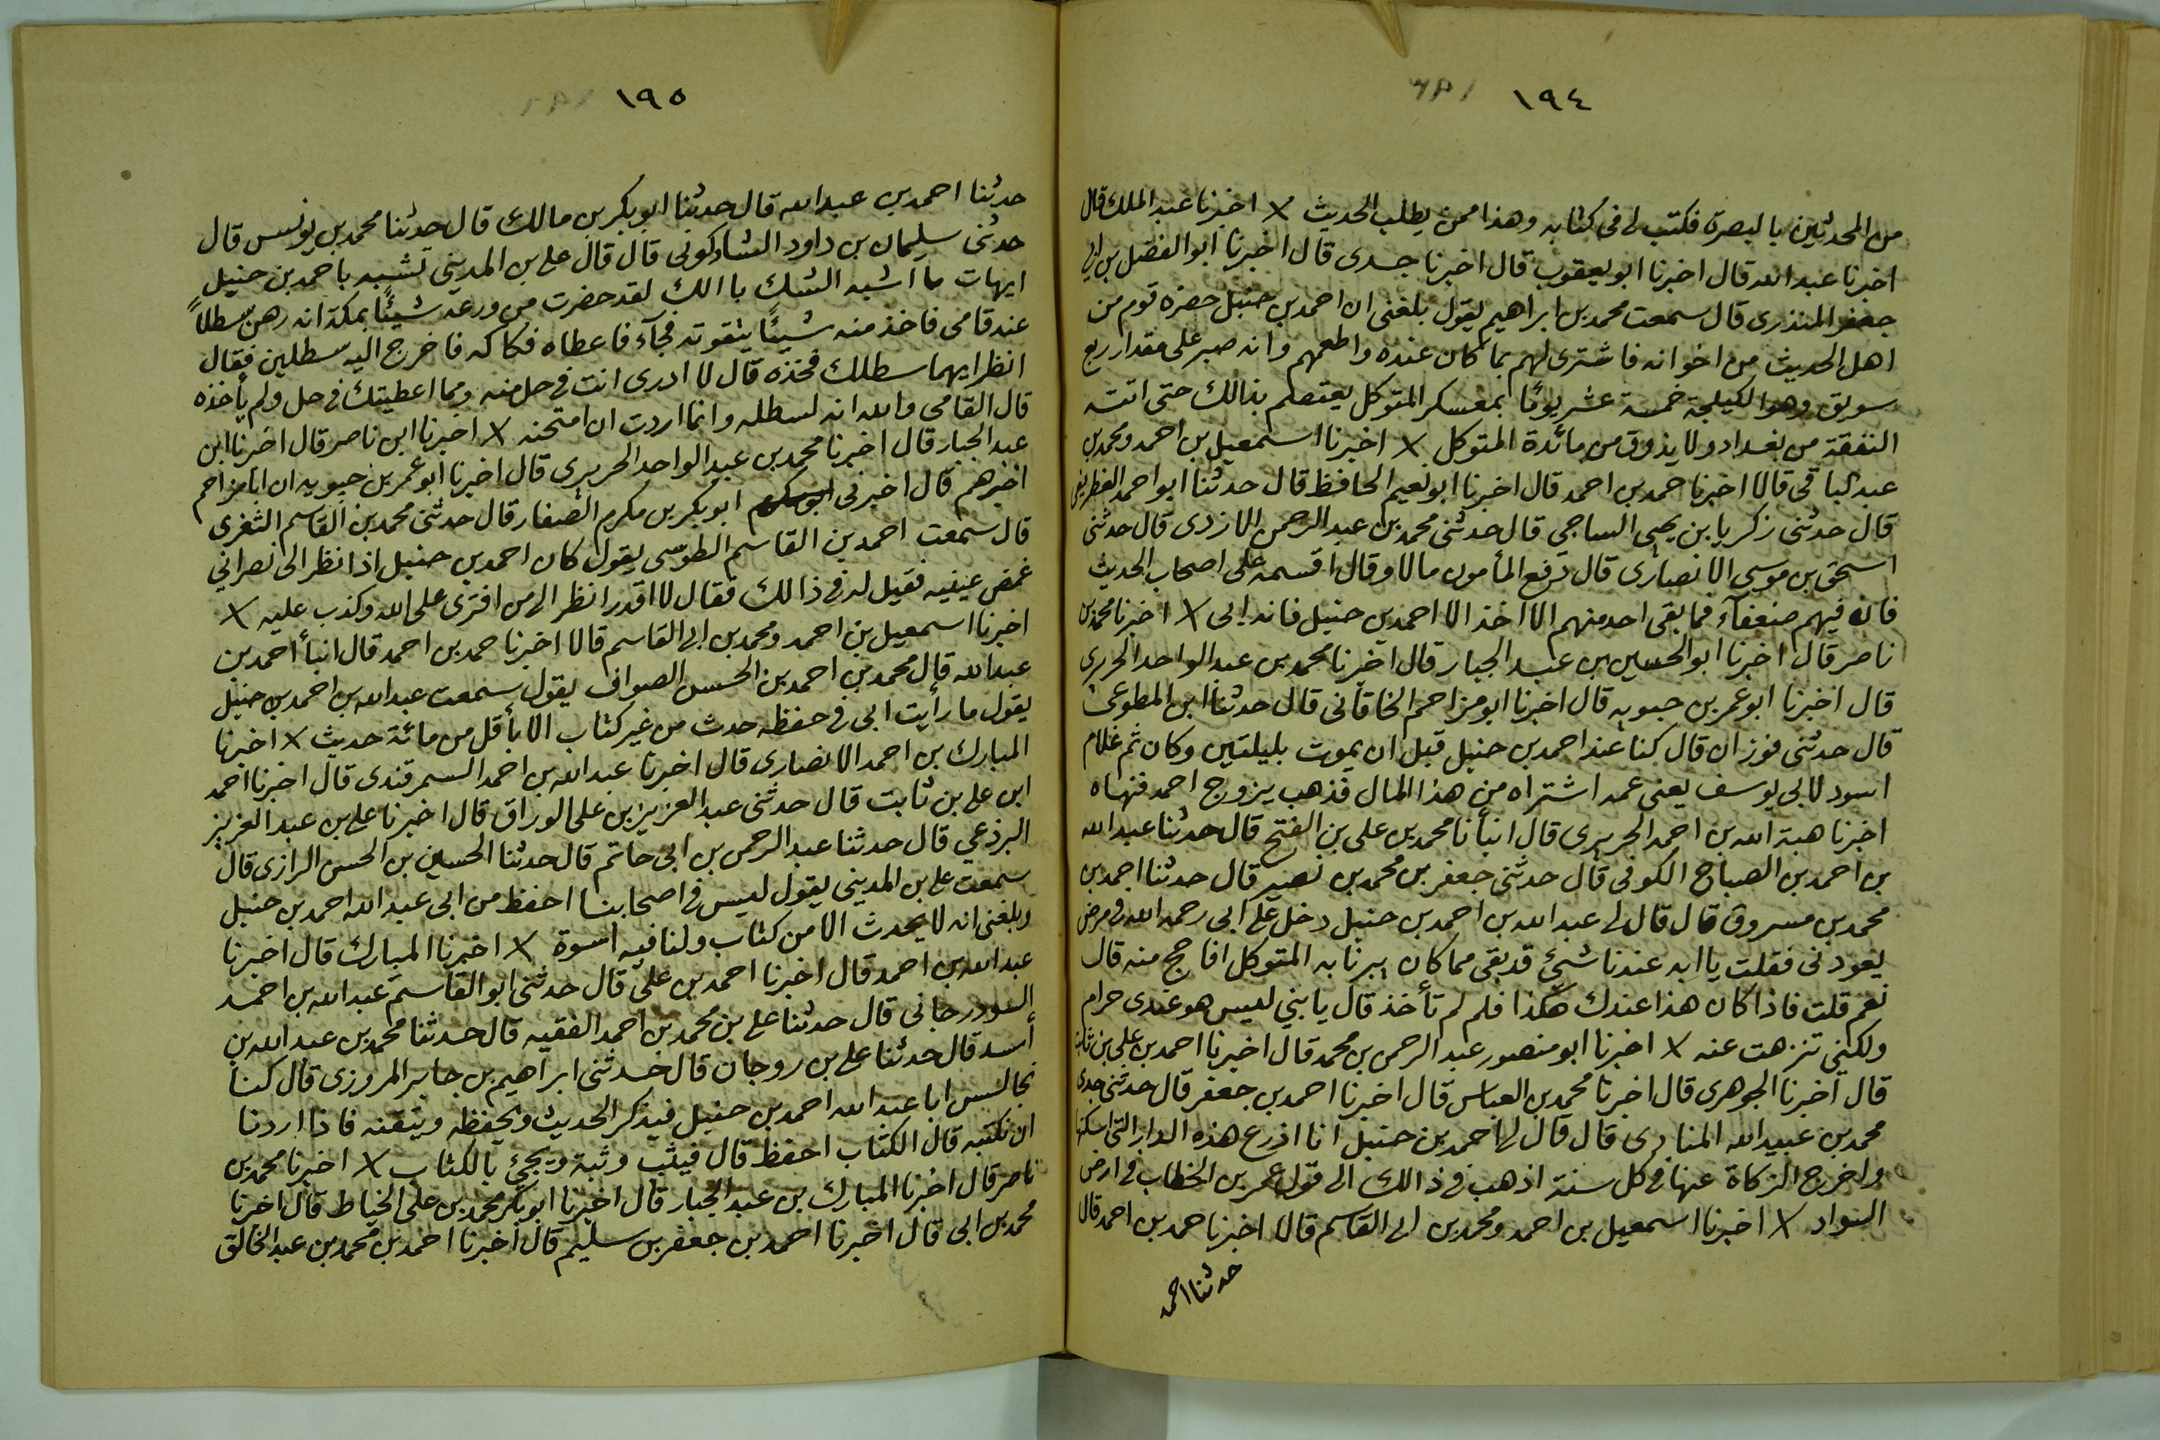 ١٩٤
من المحدثين بالبصرة فكتب لى فى كتابه وهذا ممن يطلب الحديث × اخبرنا عبد الملك قال
اخبرنا عبد الله قال اخبرنا ابو يعقوب قال اخبرنا جدى قال اخبرنا ابو الفضل بن ابى
جعفر المنذرى قال سمعت محمد بن ابراهيم يقول بلغنى ان احمد بن حنبل حضره قوم من
اهل الحديث من اخوانه فاشترى لهم بما كان عنده واطعمهم وانه صبر على مقدار ربع
سويق وهو الكيلجة خمسة عشر يومًا بمعسكر المتوكل يعتصم بذالك حتى اتته
النفقة من بغداد ولا يذوق من مائدة المتوكل × اخبرنا اسمعيل بن احمد ومحمد بن
عبد الباقى قالا اخبرنا حمد بن احمد قال اخبرنا ابو نعيم الحافظ قال حدثنا ابو احمد الغطريفى
قال حدثنى زكريا بن يحيى الساجى قال حدثنى محمد بن عبد الرحمن الازدى قال حدثنى
اسحق بن موسى الانصارى قال دفع المأمون مالا وقال اقسمه على اصحاب الحديث
فان فيهم ضعفآء فما بقى احد منهم الا اخذ الا احمد بن حنبل فانه ابى × اخبرنا محمد بن
ناصر قال اخبرنا ابو الحسين بن عبد الجبار قال اخبرنا محمد بن عبد الواحد الحريرى
قال اخبرنا ابو عمر بن حيويه قال اخبرنا ابو مزاحم الخاقانى قال حدثنا ابن المطوعى
قال حدثنى فوزان قال كنا عند احمد بن حنبل قبل ان يموت بليلتين وكان ثم غلام
اسود لابى يوسف يعنى عمه اشتراه من هذا المال فذهب يزوج احمد فنهاه
اخبرنا هبة الله بن احمد الحريرى قال انبأنا محمد بن على بن الفتح قال حدثنا عبد الله
بن احمد بن الصباح الكوفى قال حدثنى جعفر بن محمد بن نصير قال حدثنا احمد بن
محمد بن مسروق قال قال لى عبد الله بن احمد بن حنبل دخل على ابى رحمه الله فى مرض
يعودنى فقلت يا ابه عندنا شئ قد بقى مما كان يبرنا به المتوكل افاحج منه قال
نعم قلت فاذا كان هذا عندك هكذا فلم لم تأخذ قال يا بني ليس هو عندى حرام
ولكنى تنزهت عنه × اخبرنا ابو منصور عبد الرحمن بن محمد قال اخبرنا احمد بن على بن ثابت
قال اخبرنا الجوهرى قال اخبرنا محمد بن العباس قال اخبرنا احمد بن جعفر قال حدثنى جدى
محمد بن عبيد الله المنادى قال قال لى احمد بن حنبل انا اذرع هذه الدار التى اسكنها
واخرج الزكاة عنها فى كل سنة اذهب فى ذالك الى قول عمر بن الخطاب فى ارض
السواد × اخبرنا اسمعيل بن احمد ومحمد بن ابى القاسم قالا اخبرنا حمد بن احمد قالا
حدثنا احمد
١٩٥
حدثنا احمد بن عبد الله قال حدثنا ابو بكر بن مالك قال حدثنا محمد بن يونس قال
حدثنى سليمان بن داود الشاذكونى قال قال على بن المدينى تشبه باحمد بن حنبل
ايهات ما اشبه الشك بالك لقد حضرت من ورعه شيئًا بمكة انه رهن سطلاً
عند قامى فاخذ منه شيئًا يتقوته فجآء فاعطاه فكاكه فاخرج اليه سطلين فقال
انظر ايهما سطلك فخذه قال لا ادرى انت فى حل منه ومما اعطيتك فى حل ولم يأخذه
قال القامى والله انه لسطله وانما اردت ان امتحنه × اخبرنا ابن ناصر قال اخبرنا ابن
عبد الجبار قال اخبرنا محمد بن عبد الواحد الحريرى قال اخبرنا ابو عمر بن حيويه ان ابا مزاحم
اخبرهم قال اخبرنى ابو بكر بن مكرم الصفار قال حدثنى محمد بن القاسم الثغرى
قال سمعت احمد بن القاسم الطوسى يقول كان احمد بن حنبل اذا نظر الى نصراني
غمض عينيه فقيل له فى ذالك فقال لا اقدر انظر الى من افترى على الله وكذب عليه ×
اخبرنا اسمعيل بن احمد ومحمد بن ابى القاسم قالا اخبرنا حمد بن احمد قال انبأ احمد بن
عبد الله قال محمد بن احمد بن الحسن الصواف يقول سمعت عبد الله بن احمد بن حنبل
يقول ما رأيت ابى فى حفظه حدث من غير كتاب الا بأقل من مائة حديث × اخبرنا
المبارك بن احمد الانصارى قال اخبرنا عبد الله بن احمد السمرقندى قال اخبرنا احمد
ابن على بن ثابت قال حدثنى عبد العزيز بن على الوراق قال اخبرنا على بن عبد العزيز
البرذعي قال حدثنا عبد الرحمن بن ابى حاتم قال حدثنا الحسين بن الحسن الرازى قال
سمعت على بن المدينى يقول ليس فى اصحابنا احفظ من ابى عبد الله احمد بن حنبل
وبلغنى انه لا يحدث الا من كتاب ولنا فيه اسوة × اخبرنا المبارك قال اخبرنا
عبد الله بن احمد قال اخبرنا احمد بن على قال حدثنى ابو القاسم عبد الله بن احمد
السوذرجانى قال حدثنا على بن محمد بن احمد الفقيه قال حدثنا محمد بن عبد الله بن
أسد قال حدثنا على بن روحان قال حدثنى ابراهيم بن جابر المروزى قال كنا
نجالس ابا عبد الله احمد بن حنبل فيذكر الحديث ويحفظه ويتقنه فاذا اردنا
ان نكتبه قال الكتاب احفظ قال فيثب وثبة ويجئ بالكتاب × اخبرنا محمد بن
ناصر قال اخبرنا المبارك بن عبد الجبار قال اخبرنا ابو بكر محمد بن على الخياط قال اخبرنا
محمد بن ابى قال اخبرنا احمد بن جعفر بن سليم قال اخبرنا احمد بن محمد بن عبد الخالق